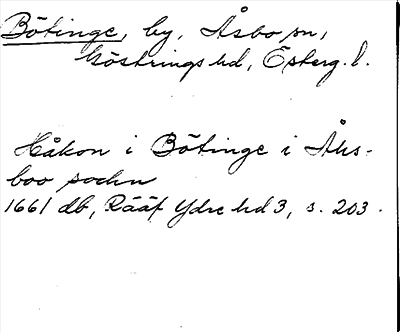 Bötinge, by, Åsbo sn,
Göstrings hd, Österg. l.
Håkon i Bötinge i Åhs-
boo sochn
1661 db, Rääf Ydre hd 3, s. 203.